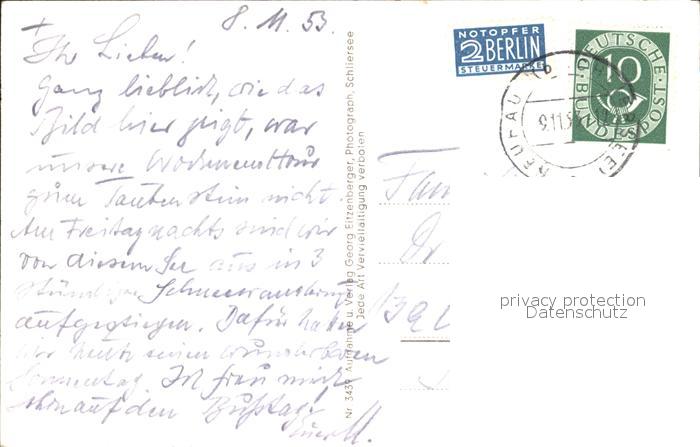 8.11.53.
Ihr Lieben!
Ganz lieblich, wie das
Bild hier zeigt, war
unsere
zum Taubenstein nicht.
Am Freitag nachts sind wir
von diesem See aus in 3
stündigem
aufgestiegen. Dafür haben
wir heute einen wunderbaren
Sonnentag. Ich freu mich
schon auf den Bußtag.
Euer
Nr. 3439 Aufnahme u. Verlag Georg Eitzenberger, Photograph, Schliersee
Jede Art Vervielfältigung verboten
NOTOPFER
2 BERLIN
STEUERMARKE
DEUTSCHE BUNDESPOST
10
NEUHAU
9.11.5
Fam
Dr
privacy protection
Datenschutz